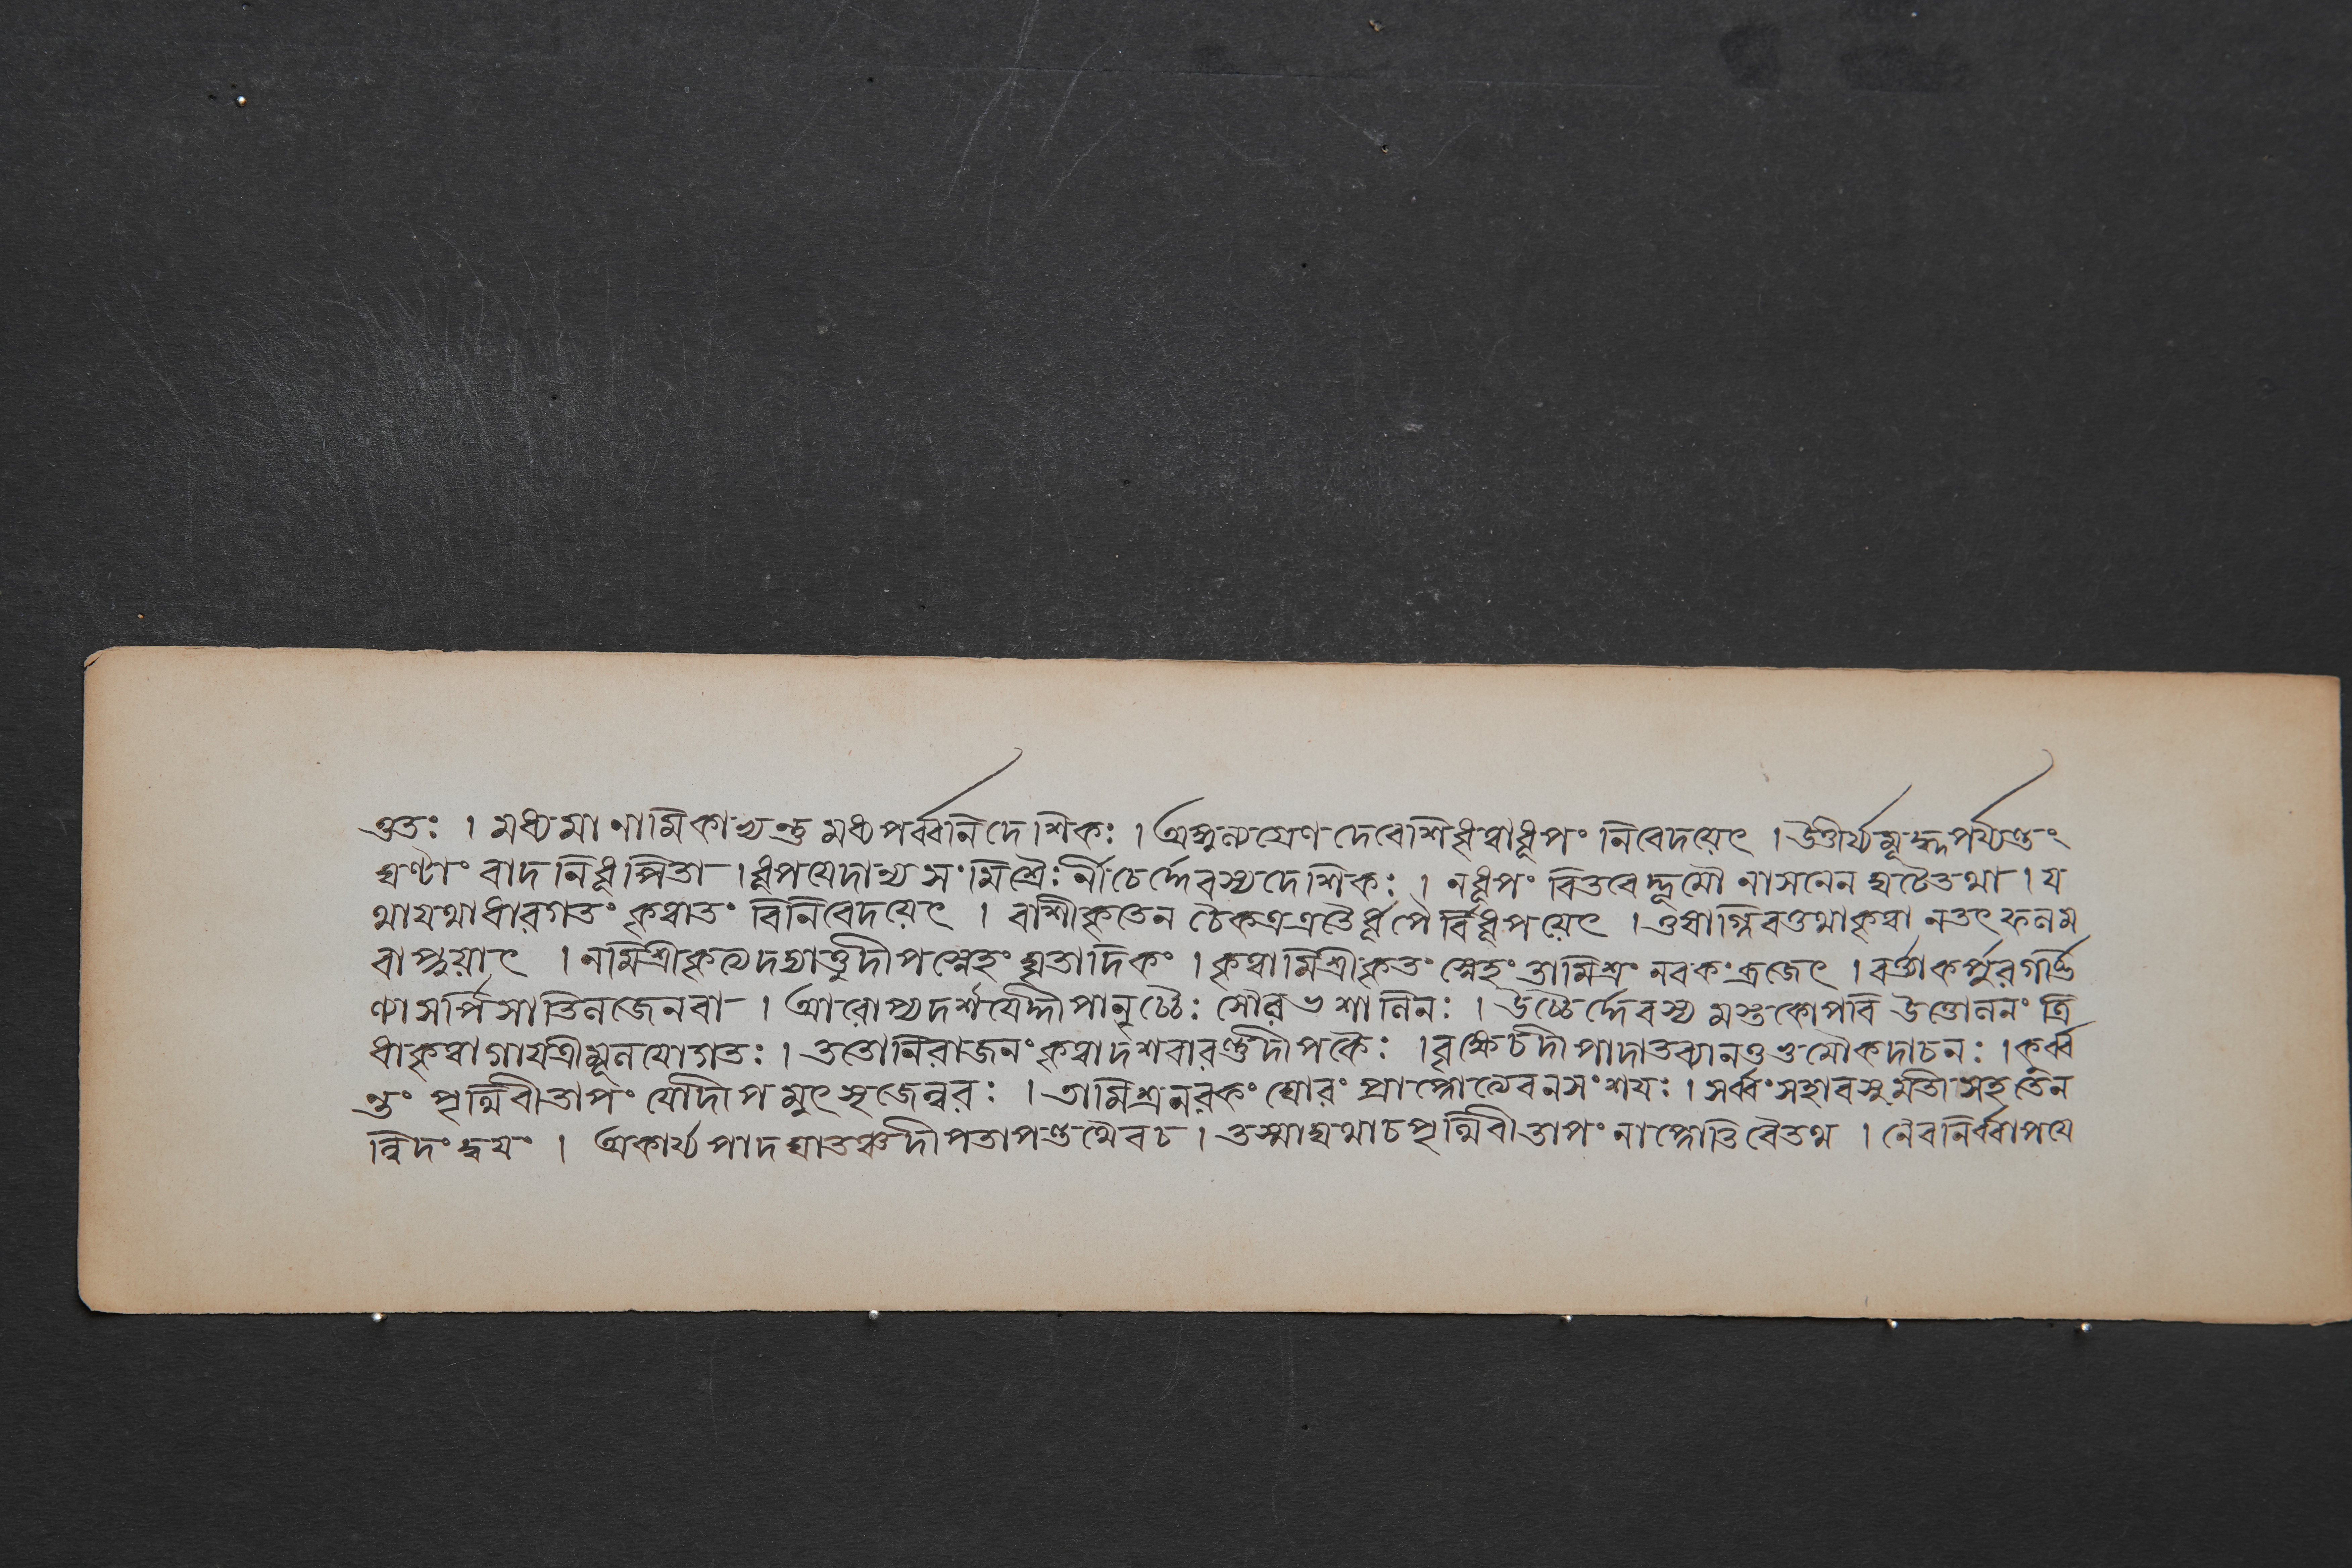 ত্ততঃ । মধ্যমানামিকাখ্যন্তু মধ্যপর্ব্বনিদেশিকঃ । অঙ্গুল্যগ্রেণদেবেশিধৃত্বাধূপং নিবেদয়েৎ । উত্তীর্য্যমূর্দ্ধপর্য্যন্তং
ঘণ্টাং বাদনিধূপিতা । ধূপযেদাখ্যসংমিশ্রৈঃর্নীচৈর্দ্দেবস্যদেশিকঃ । নধূপং বিতরেদ্ভূমৌ নাসনেনঘটেতথা । য
থাযথাধারগতং কৃত্বাতং বিনিবেদয়েৎ । রাশীকৃতেন চৈকত্রএতৈর্ধূপৈর্বিধূপয়েৎ । তুষাগ্নিবত্তথাকৃত্বা নতৎফলম
বাপ্নুয়াৎ । নমিশ্রীকৃত্যদদ্যাত্তুদীপস্নেহং ঘৃতাদিকং । কৃত্বামিশ্রীকৃতং স্নেহং তামিশ্রং নরকংব্রজেৎ । বর্ত্ত্যাকর্পুরগর্ভি
ণ্যাসর্পিসাতিলজেনবা । আরোপ্যদর্শযেদ্দীপানুচ্চৈঃ সৌরভশালিনঃ । উচ্চৈর্দ্দেবস্য মস্তকোপরি উত্তোলনং ত্রি
ধাকৃত্বাগাযত্রীমূলযোগতঃ । ততোনিরাজনং কৃত্বাদশবারন্তুদীপকৈঃ । বৃক্ষেচদীপাদাতব্যানতুভূমৌকদাচনঃ । কুর্ব্ব
ন্তং পৃথিবীতাপং যোদীপমুৎসৃজেন্নরঃ । তামিশ্রনরকং ঘোরং প্রাপ্নোত্যেবনসংশযঃ । সর্ব্বংসহাবসুমতী সহতেন
ত্বিদংদ্বযং । অকার্য্যপাদঘাতঞ্চদীপতাপন্তথৈবচ । তস্মাদ্যথাচপৃথিবীতাপং নাপ্নোতিবৈতথ । নৈবনির্ব্বাপযে